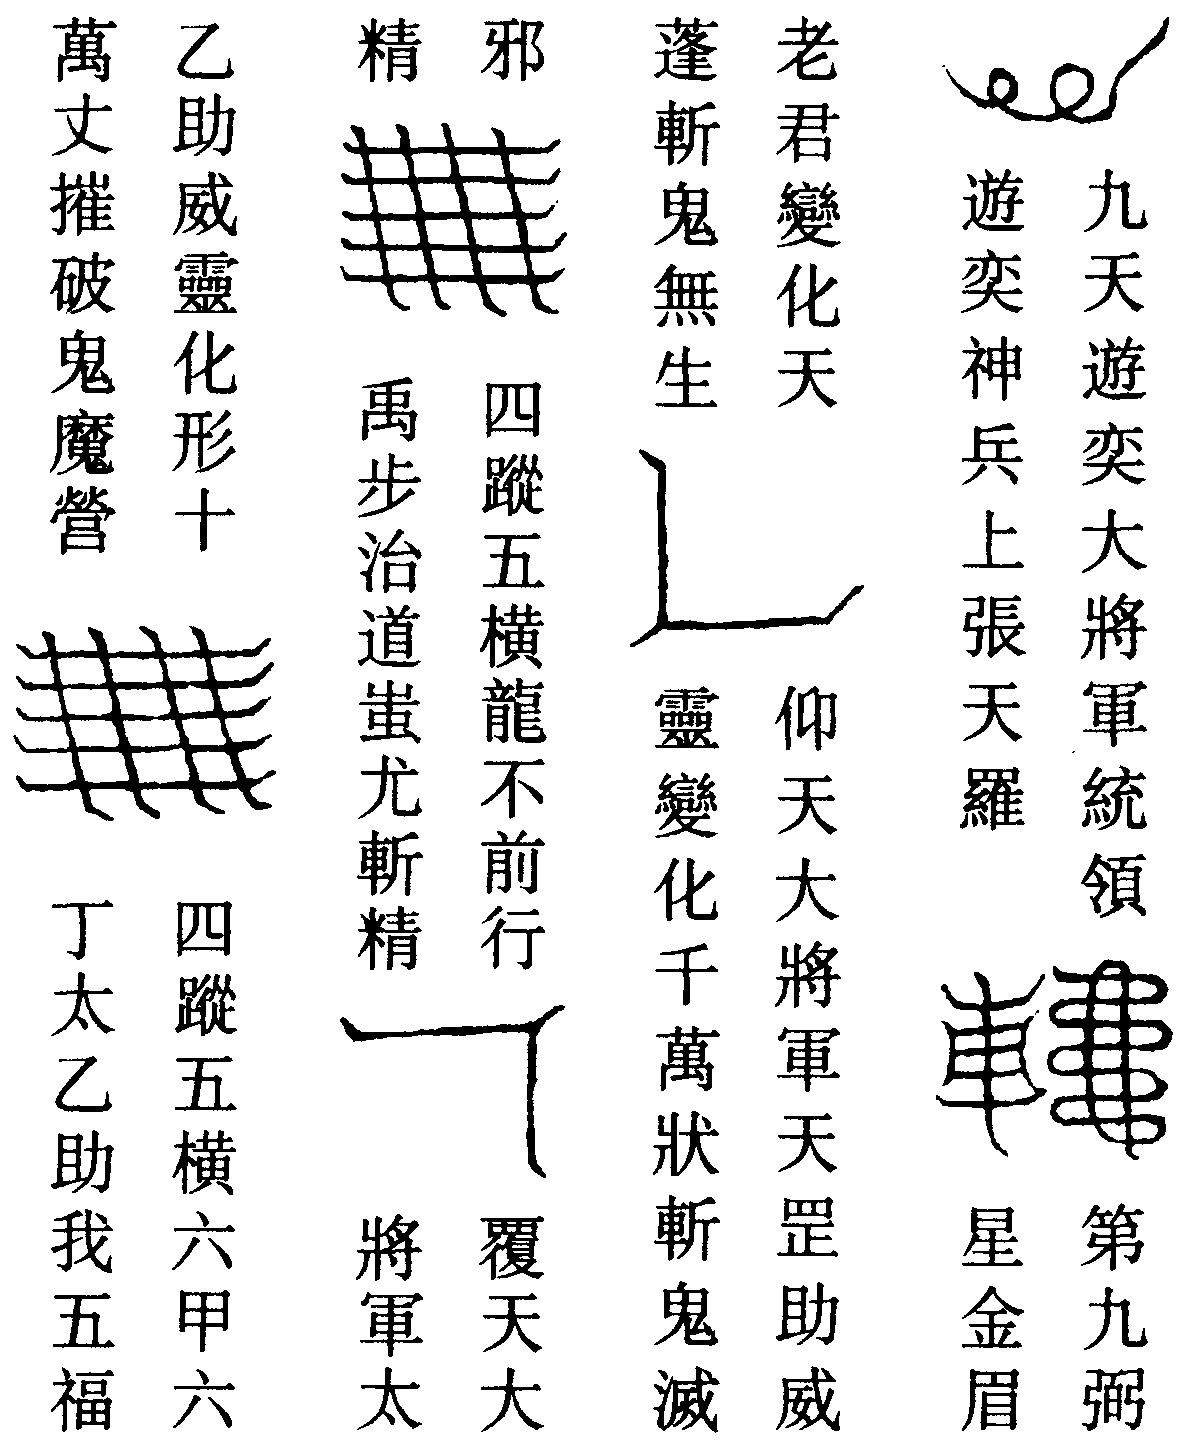 九天遊奕大將軍統領
遊奕神兵上張天羅
第九弼
星金眉
老君變化天
蓬斬鬼無生
仰天大將軍天罡助威
靈變化千萬狀斬鬼滅
邪
精
四蹤五横龍不前行
禹步治道蚩尤斬精
覆天大
將軍太
乙助威靈化形十
萬丈摧破鬼魔營
四蹤五横六甲六
丁太乙助我五福